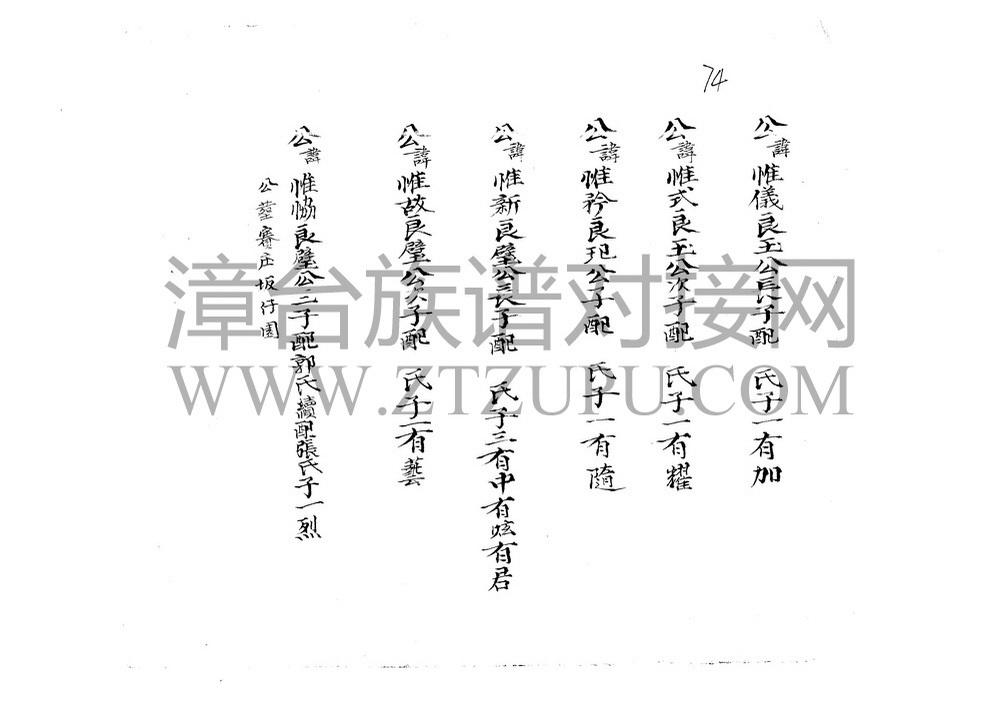 74
公諱惟儀良玉公長子配 氏子一有加
公諱惟式良玉公次子配 氏子一有耀
公諱惟矜良玘公子配 氏子一有隨
公諱惟新良璧公長子配 氏子三有中有炫有君
公諱惟故良璧公次子配 氏子一有藝
公諱惟恊良璧公三子配郭氏續配張氏子一烈
公塟賽庄坂仔園
漳台族谱对接网
WWW.ZTZUPU.COM